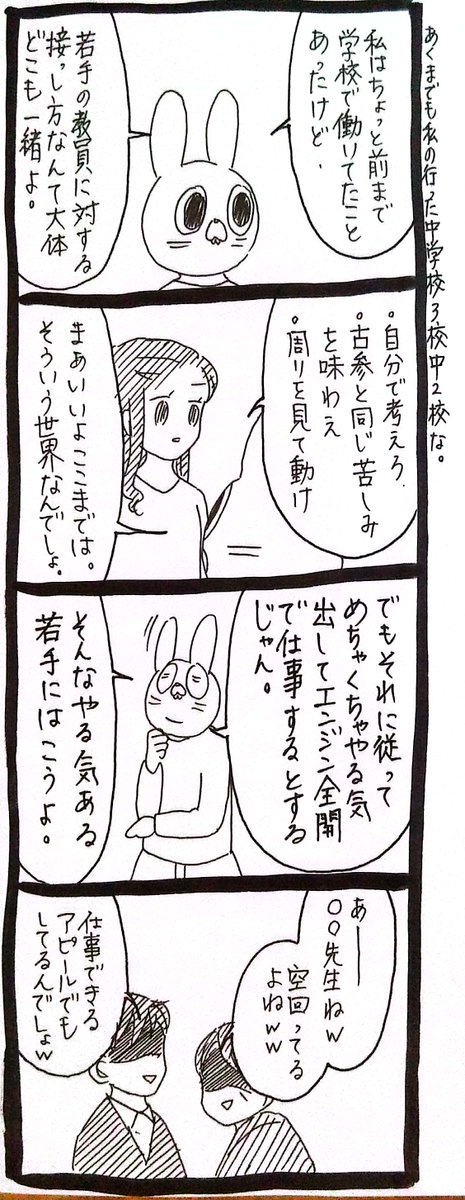 あくまでも私の行った中学校3校中2校な。
私はちょっと前まで
学校で働いてたこと
あったけど、
若手の教員に対する
接っし方なんて大体
どこも一緒よ。
・自分で考えろ、
・古参と同じ苦しみ
を味わえ
・周りを見て動け
まぁいいよここまでは。
そういう世界なんでしょ。
でもそれに従って
めちゃくちゃやる気
出してエンジン全開
で仕事するとする
じゃん。
そんなやる気ある
若手にはこうよ。
あ――
〇〇先生ねw
空回ってる
よねww
仕事できる
アピールでも
してるんでしょw